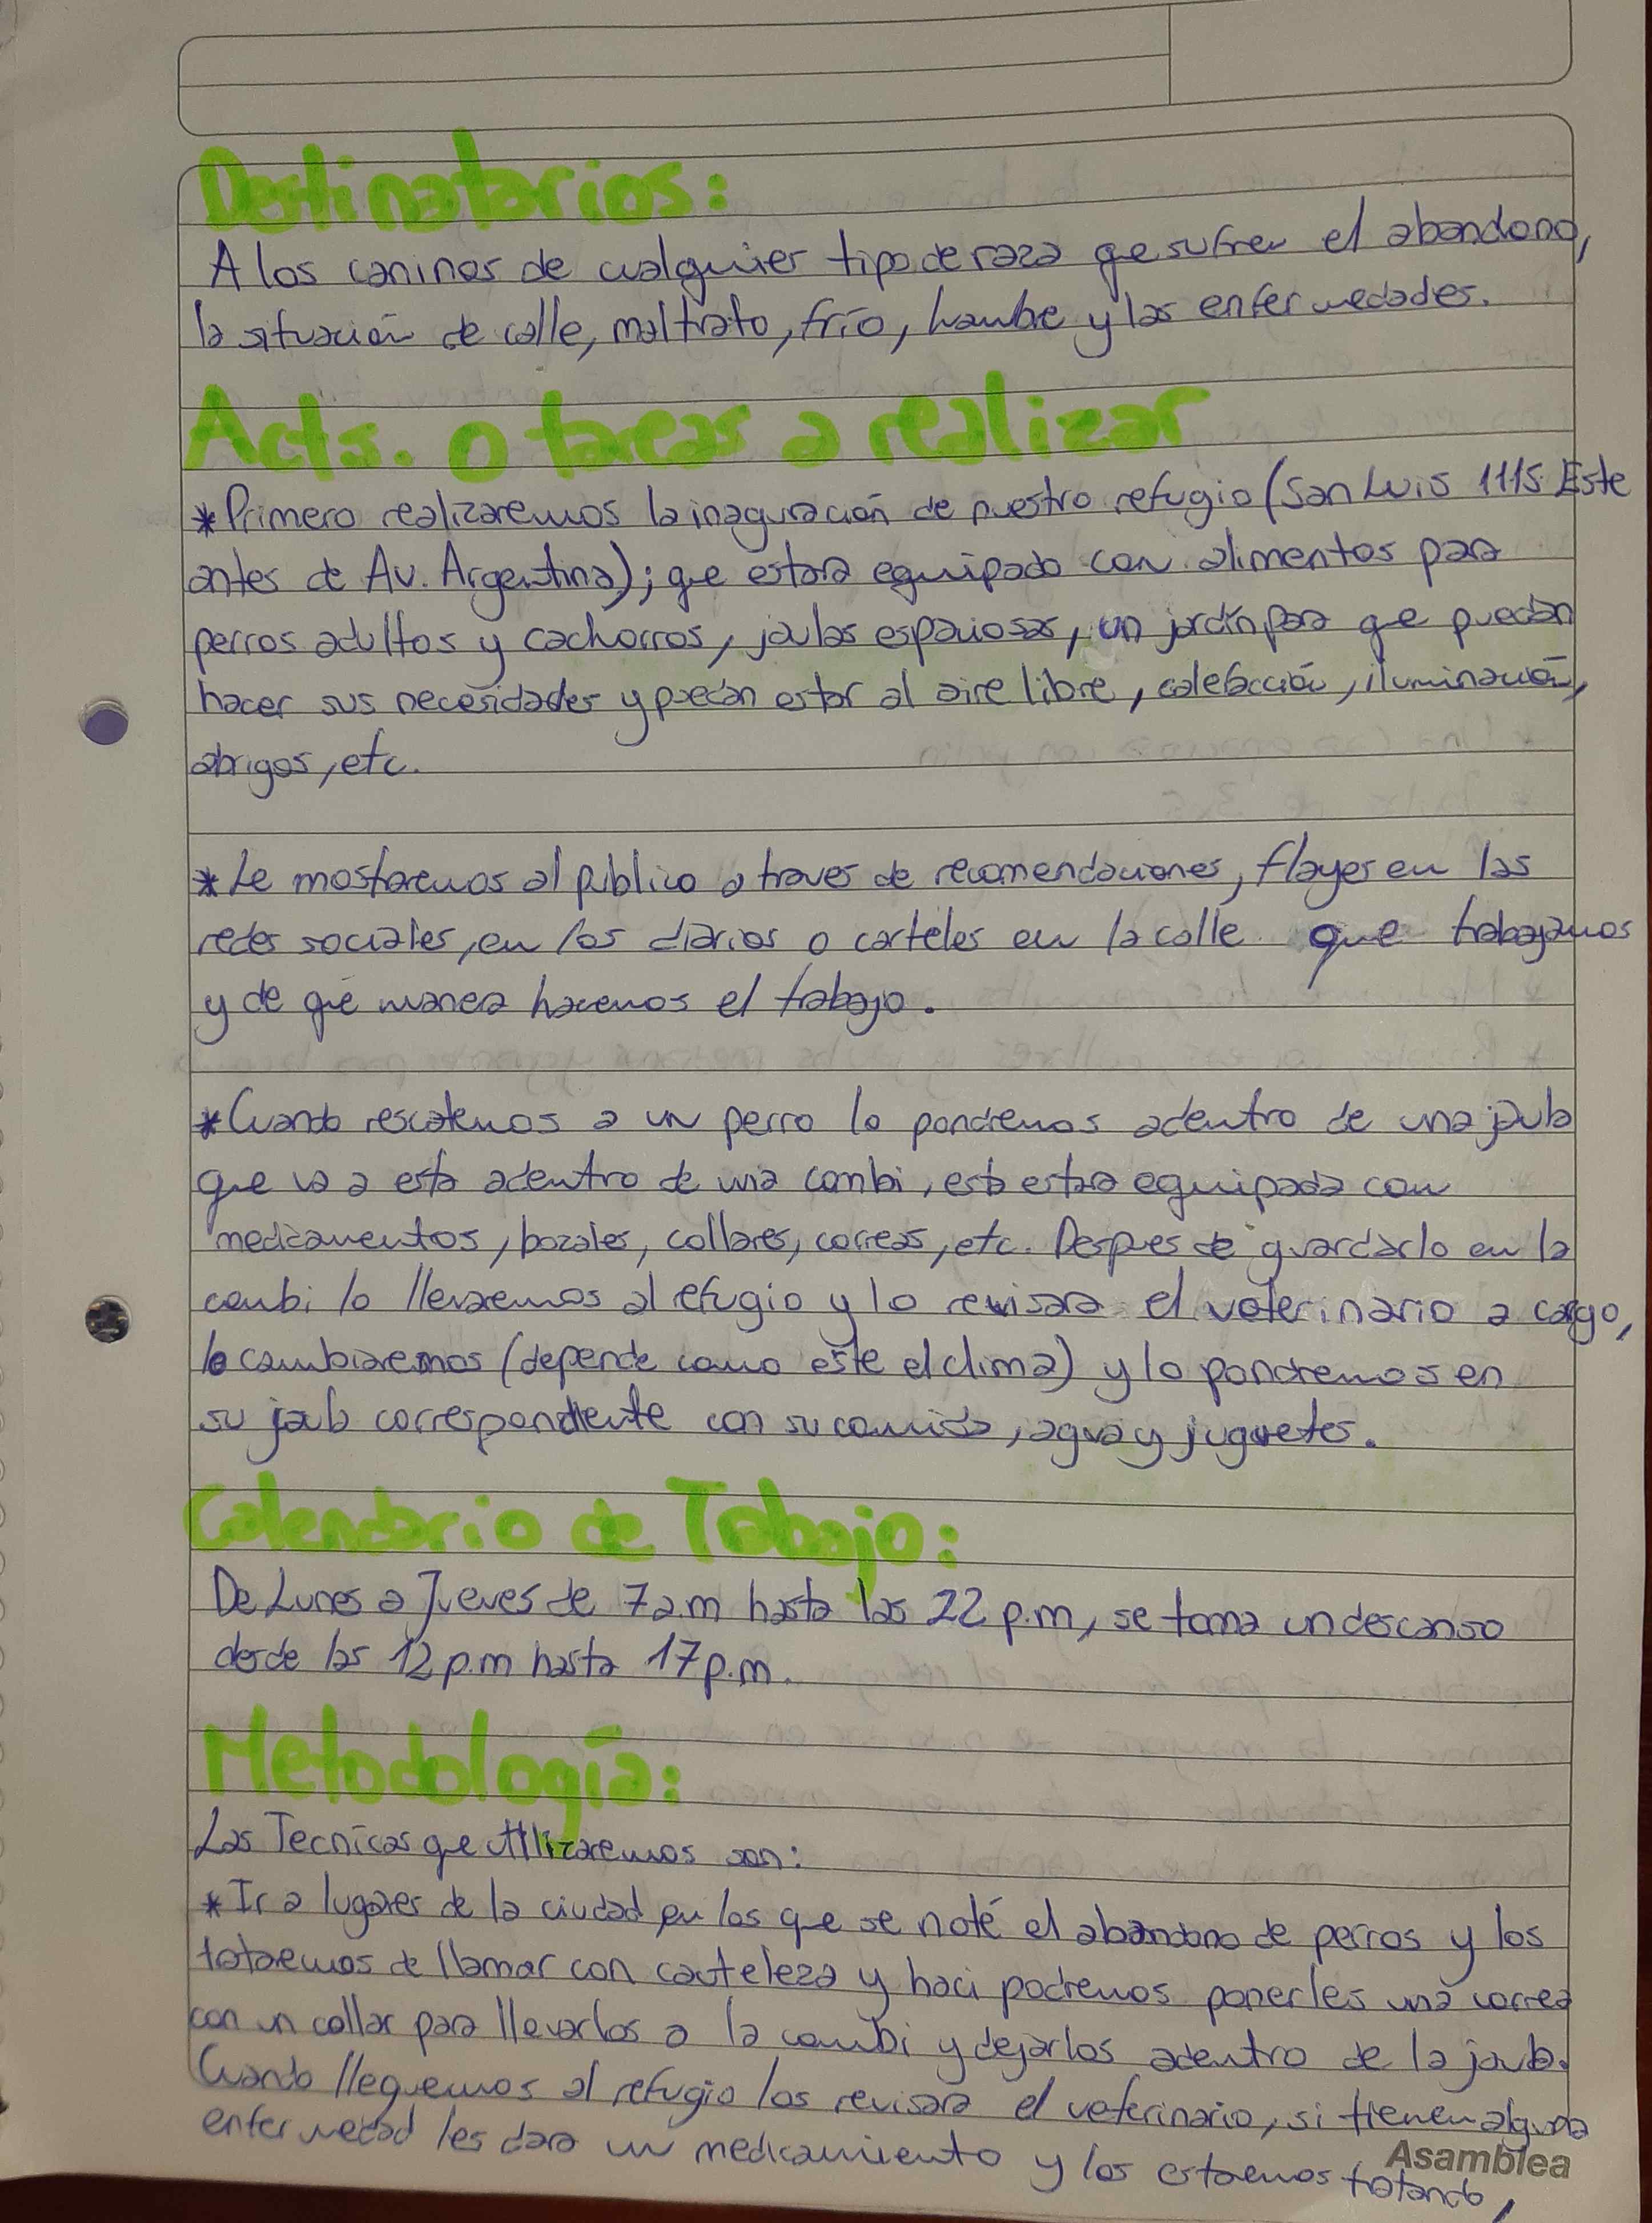 Destinatarios:
A los caninos de cualquier tipo de raza que sufren el abandono,
la situación de calle, maltrato, frío, hambre y las enfermedades.
Acts. o tareas a realizar
*Primero realizaremos la inaguración de nuestro refugio (San Luis 1115 Este
antes de Av. Argentina); que estara equipado con alimentos para
perros adultos y cachorros, jaulas espaciosas, un jardín para que puedan
hacer sus necesidades y puedan estar al aire libre, calefacción, iluminación,
abrigos, etc.
*Le mostraremos al público a traves de recomendaciones, flayer en las
redes sociales, en los diarios o carteles en la calle que trabajamos
y de qué manera hacemos el trabajo.
*Cuando rescatemos a un perro lo pondremos adentro de una jaula
que va a esta adentro de una combi, esta estara equipada con
medicamentos, bozales, collares, correas, etc. Despues de guardarlo en la
combi lo llevaremos al refugio y lo revisara el veterinario a cargo,
lo cambiaremos (depende como este el clima) y lo pondremos en
su jaula correspondiente con su comida, agua y juguetes.
Calendario de Trabajo:
De Lunes a Jueves de 7 a.m hasta las 22 p.m, se toma un descanso
desde las 12 p.m hasta 17 p.m.
Metodología:
Las Tecnicas que utilizaremos son:
*Ir a lugares de la ciudad en los que se noté el abandono de perros y los
trataremos de llamar con cauteleza y haci podremos ponerles una correa
con un collar para llevarlos a la combi y dejarlos adentro de la jaula.
Cuando lleguemos al refugio los revisara el veterinario, si tienen alguna
enfermedad les dara un medicamiento y los estaremos tratando,
Asamblea